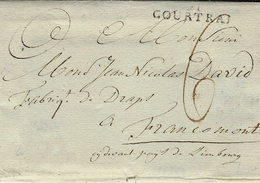 COURTRAI
A Monsieur
Monsr Jean Nicolas David
Fabriqt. de Draps
a
Francomont
cydevant pays de Limbourg